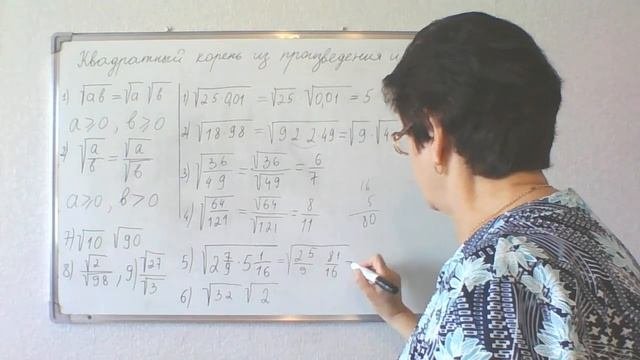 Квадратный корень из произведения и
1) √ab = √a √b
a ⩾ 0 , b ⩾ 0
2) √(a/b) = √a/√b
a ⩾ 0 , b > 0
7) √10 √90
8) √2/√98 , 9) √27/√3
1) √(25·0,01) = √25 · √0,01 = 5
2) √(18·98) = √(9 2 2·49) = √9 · √4
3) √(36/49) = √36/√49 = 6/7
4) √(64/121) = √64/√121 = 8/11
16
5
80
5) √(2 7/9 · 5 1/16) = √(25/9 81/16)
6) √32 √2